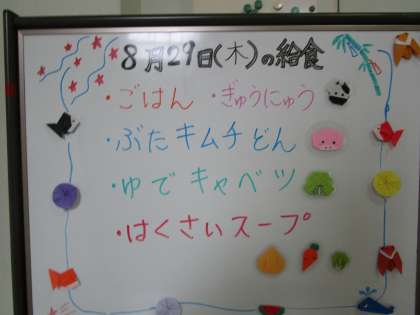 8月29日(木)の給食
・ごはん ・ぎゅうにゅう
・ぶたキムチどん
・ゆでキャベツ
・はくさいスープ